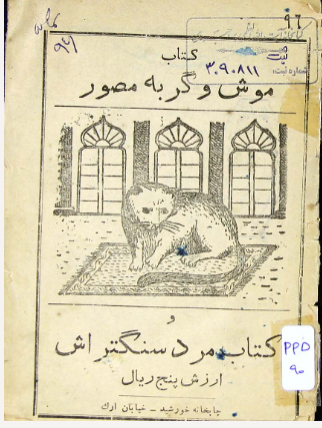 ۹۶
ثبت
کتاب
۳۰۹۰۸۱۱
شماره ثبت:
موش و گربه مصور
و
کتاب مرد سنگتراش
ارزش پنج ریال
چاپخانه خورشید - خیابان ارک
PPD
۹۰